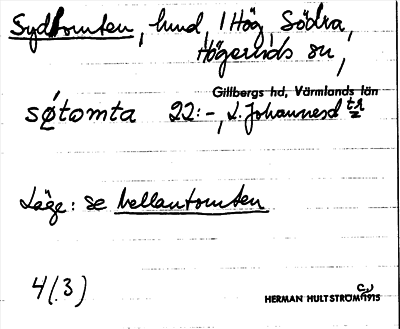 Sydtomten, lund, 1 Hög, Södra,
Högeruds sn,
Gillbergs hd, Värmlands län
søtomta 22:-, L. Johannesd tr
Läge: se hellantomten
4(.3)
HERMAN HULTSTRÖM 1915